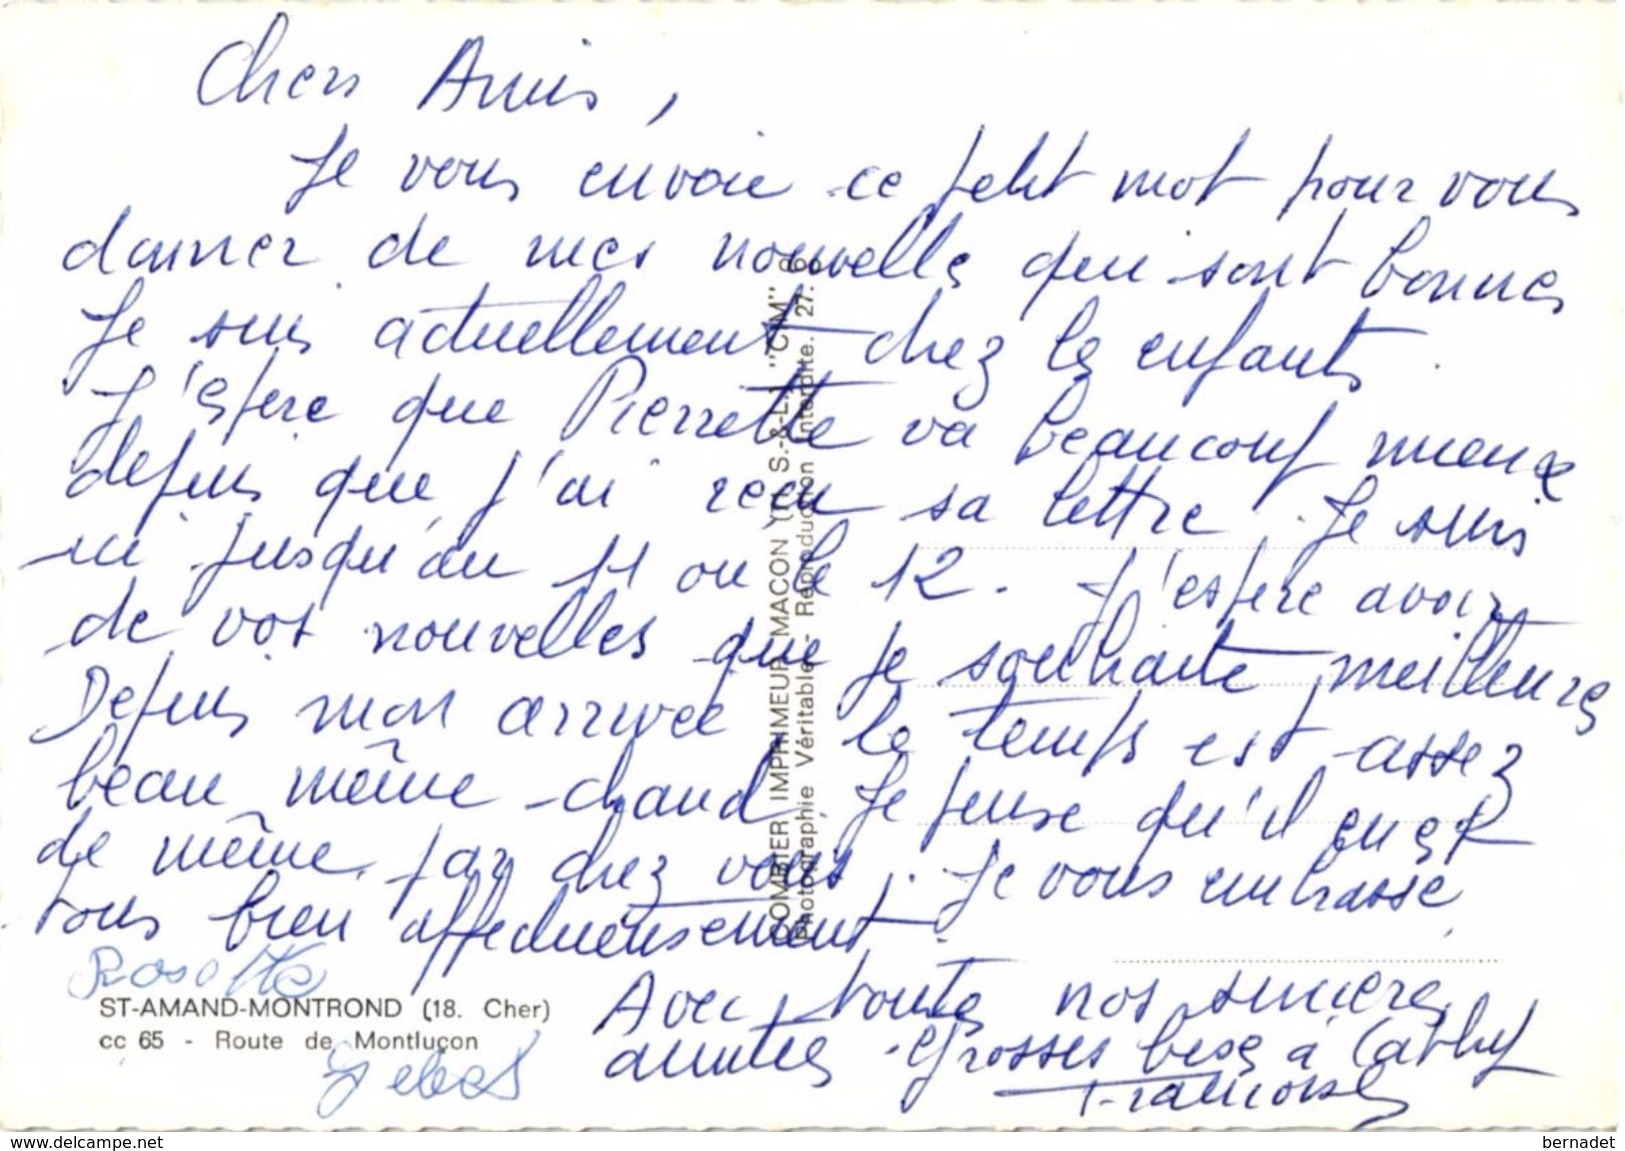 Chers Amis,
Je vous envoie ce petit mot pour vous
donner de mes nouvelles qui sont bonnes
Je suis actuellement chez les enfants.
J'espère que Pierrette va beaucoup mieux
depuis que j'ai reçu sa lettre. Je suis
ici jusqu'au 11 ou le 12. J'espère avoir
de vos nouvelles que je souhaite meilleures
Depuis mon arrivée, le temps est assez
beau même chaud. Je pense qu'il en est
de même par chez vous. Je vous embrasse
tous bien affectueusement.
Avec toutes nos sincères
amitiés. Grosses bises à Cathy
Françoise
Rosette
ST-AMAND-MONTROND (18. Cher)
cc 65 - Route de Montluçon
COMBIER IMPRIMEUR MACON (S.-&-L.) "CIM"
Photographie Véritable - Reproduction interdite. 27.
www.delcampe.net
bernadet